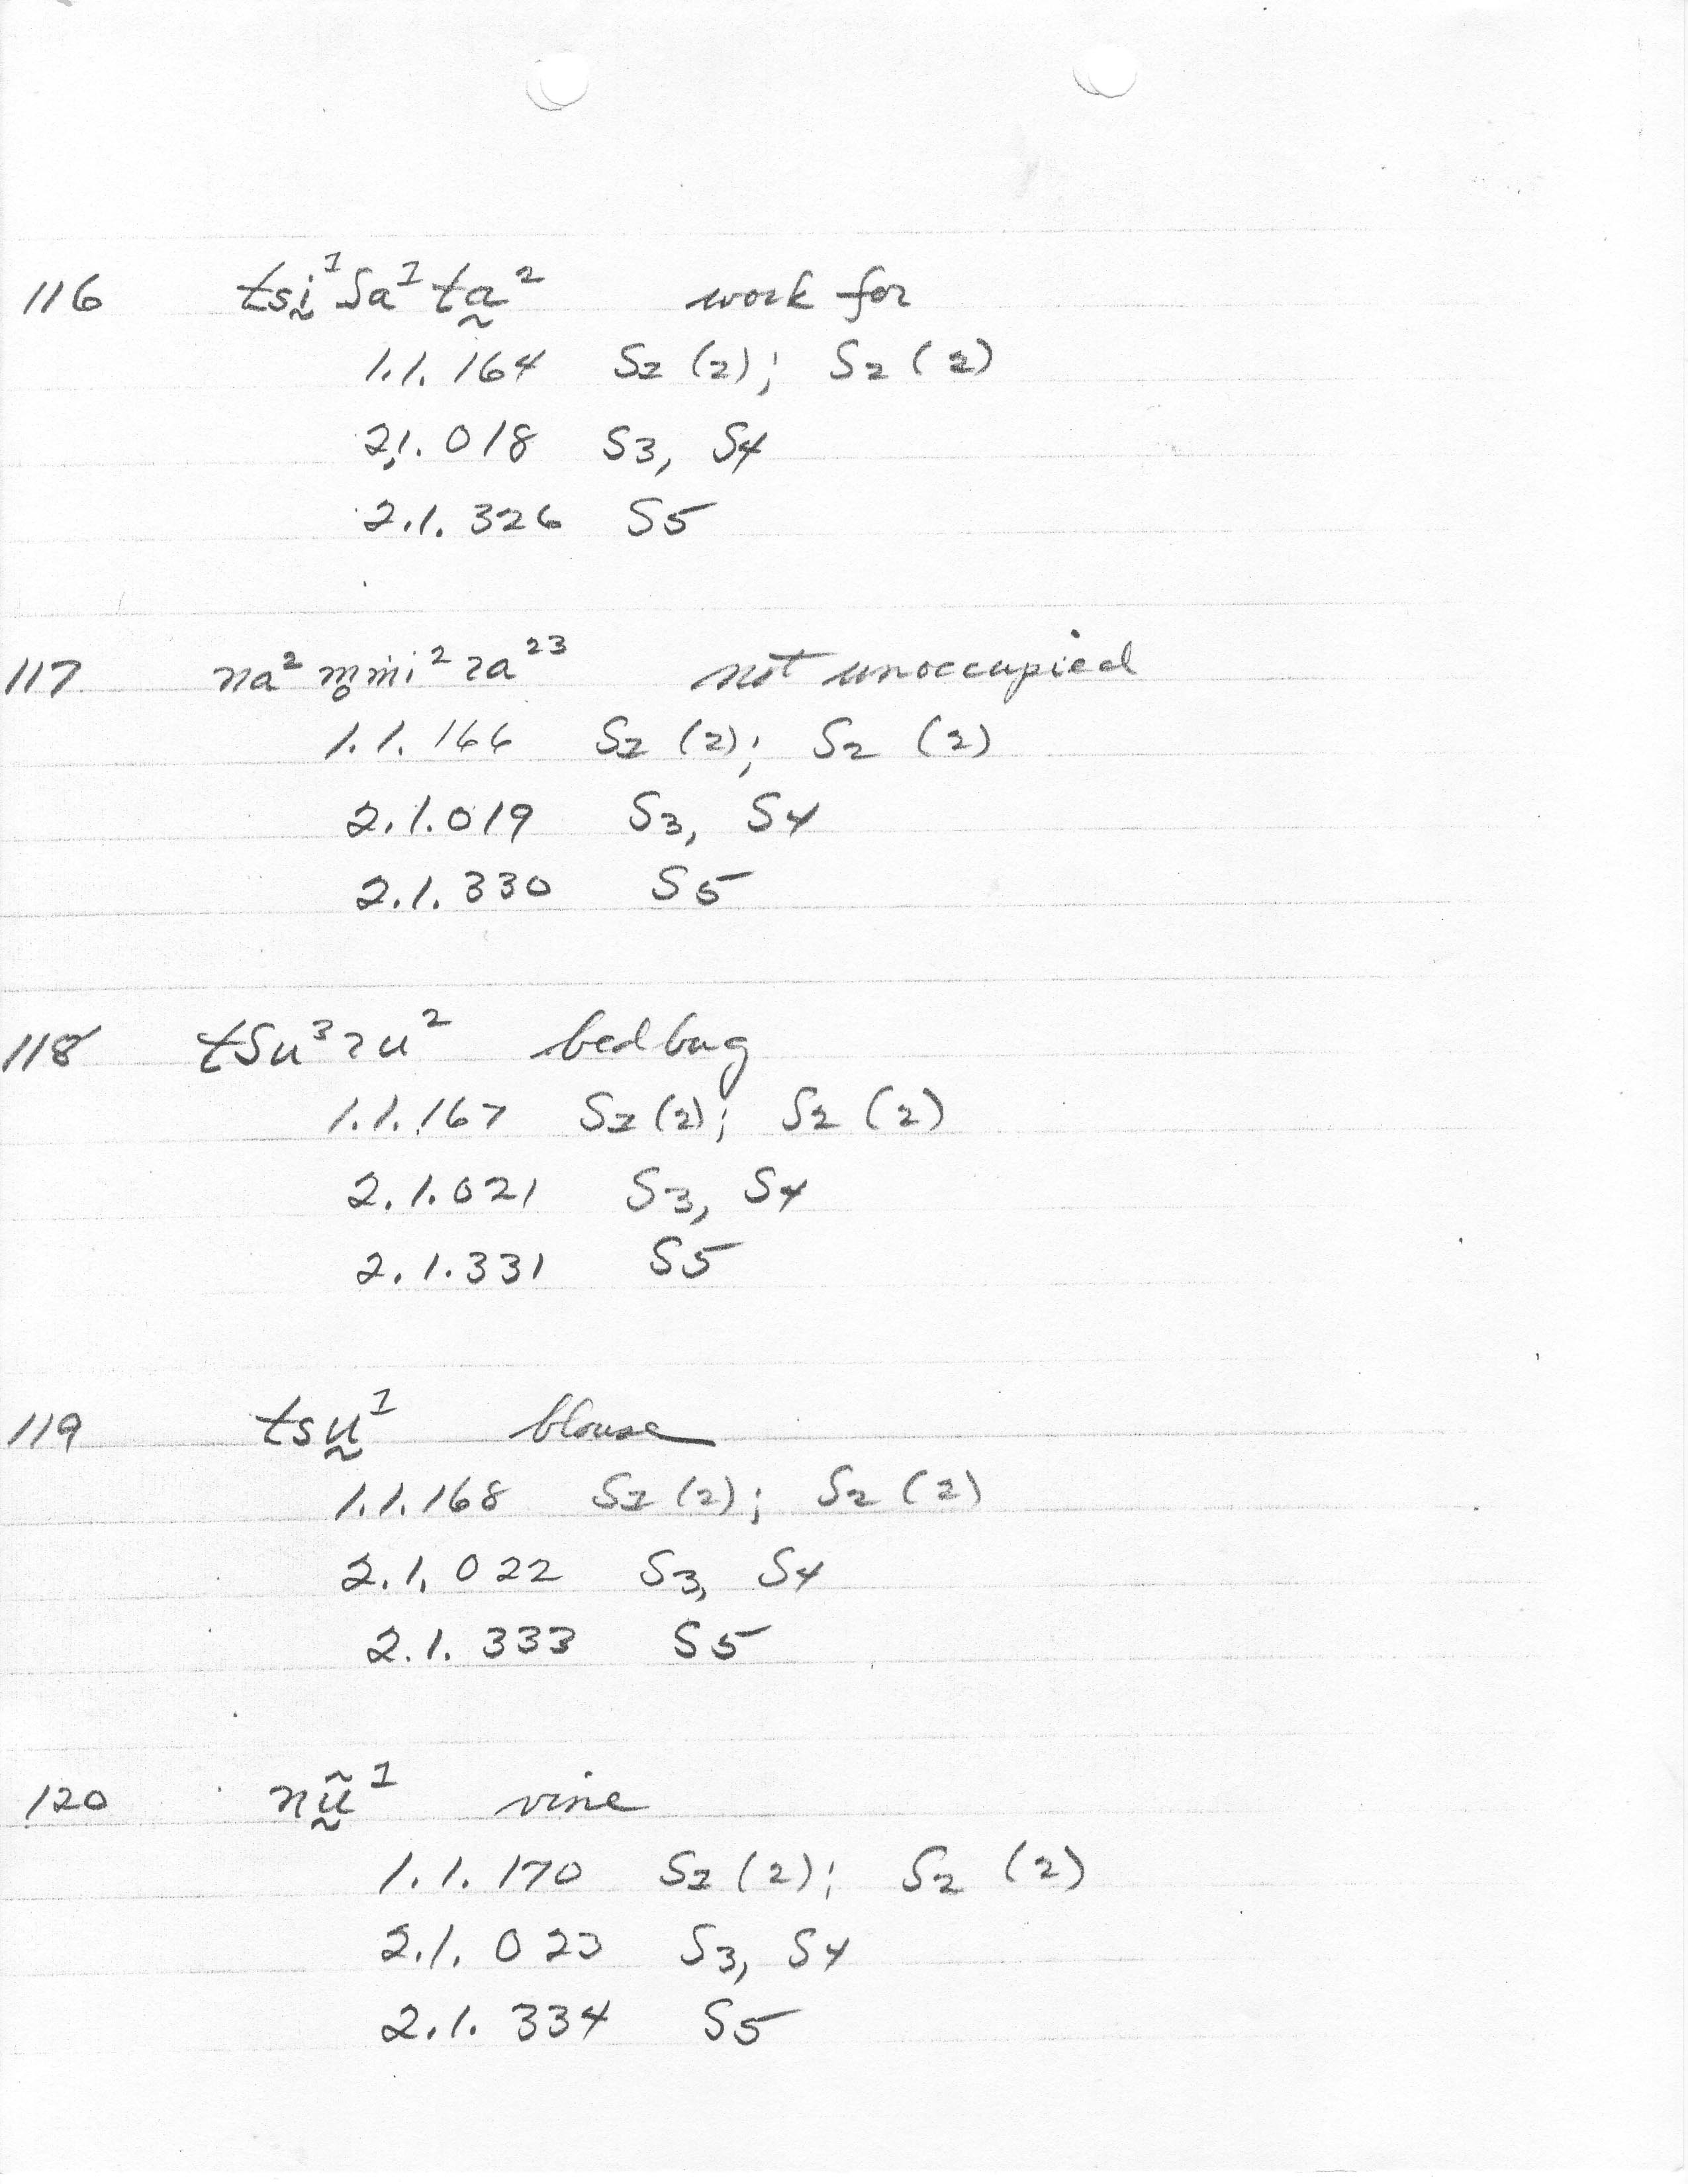 116 tsḭ¹ʃa¹ta̰² work for
1.1.164 S1 (2); S2 (2)
2.1.018 S3, S4
2.1.326 S5
117 na²m̥mi²ʔa²³ not unoccupied
1.1.166 S1 (2); S2 (2)
2.1.019 S3, S4
2.1.330 S5
118 tʃu³ʔu² bedbug
1.1.167 S1 (2); S2 (2)
2.1.021 S3, S4
2.1.331 S5
119 tsṵ¹ blouse
1.1.168 S1 (2); S2 (2)
2.1.022 S3, S4
2.1.333 S5
120 nṵ̃¹ vine
1.1.170 S1 (2); S2 (2)
2.1.023 S3, S4
2.1.334 S5